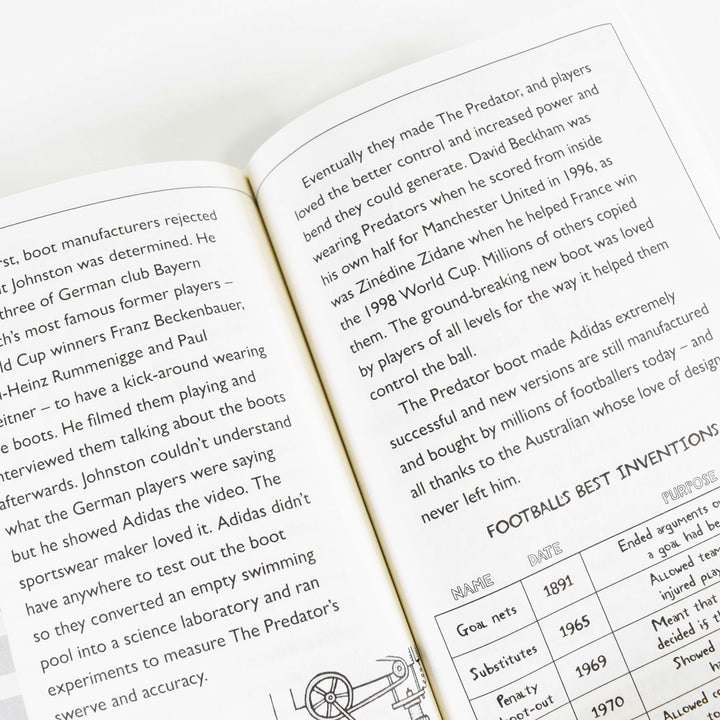 rst, boot manufacturers rejected
t Johnston was determined. He
three of German club Bayern
ch's most famous former players –
ld Cup winners Franz Beckenbauer,
l-Heinz Rummenigge and Paul
eitner – to have a kick-around wearing
e boots. He filmed them playing and
nterviewed them talking about the boots
afterwards. Johnston couldn't understand
what the German players were saying
but he showed Adidas the video. The
sportswear maker loved it. Adidas didn't
have anywhere to test out the boot
so they converted an empty swimming
pool into a science laboratory and ran
experiments to measure The Predator's
swerve and accuracy.
Eventually they made The Predator, and players
loved the better control and increased power and
bend they could generate. David Beckham was
wearing Predators when he scored from inside
his own half for Manchester United in 1996, as
was Zinédine Zidane when he helped France win
the 1998 World Cup. Millions of others copied
them. The ground-breaking new boot was loved
by players of all levels for the way it helped them
control the ball.
The Predator boot made Adidas extremely
successful and new versions are still manufactured
and bought by millions of footballers today – and
all thanks to the Australian whose love of design
never left him.
FOOTBALL'S BEST INVENTIONS
NAME DATE PURPOSE
Goal nets 1891 Ended arguments o
a goal had be
Substitutes 1965 Allowed tea
injured play
Penalty
shoot-out 1969 Meant that
decided is t
1970 Showed
Allowed c